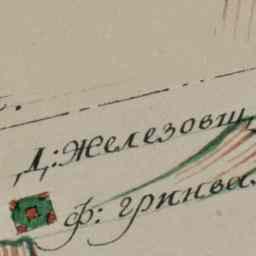 Д: Железовщ
Ф: гринва.